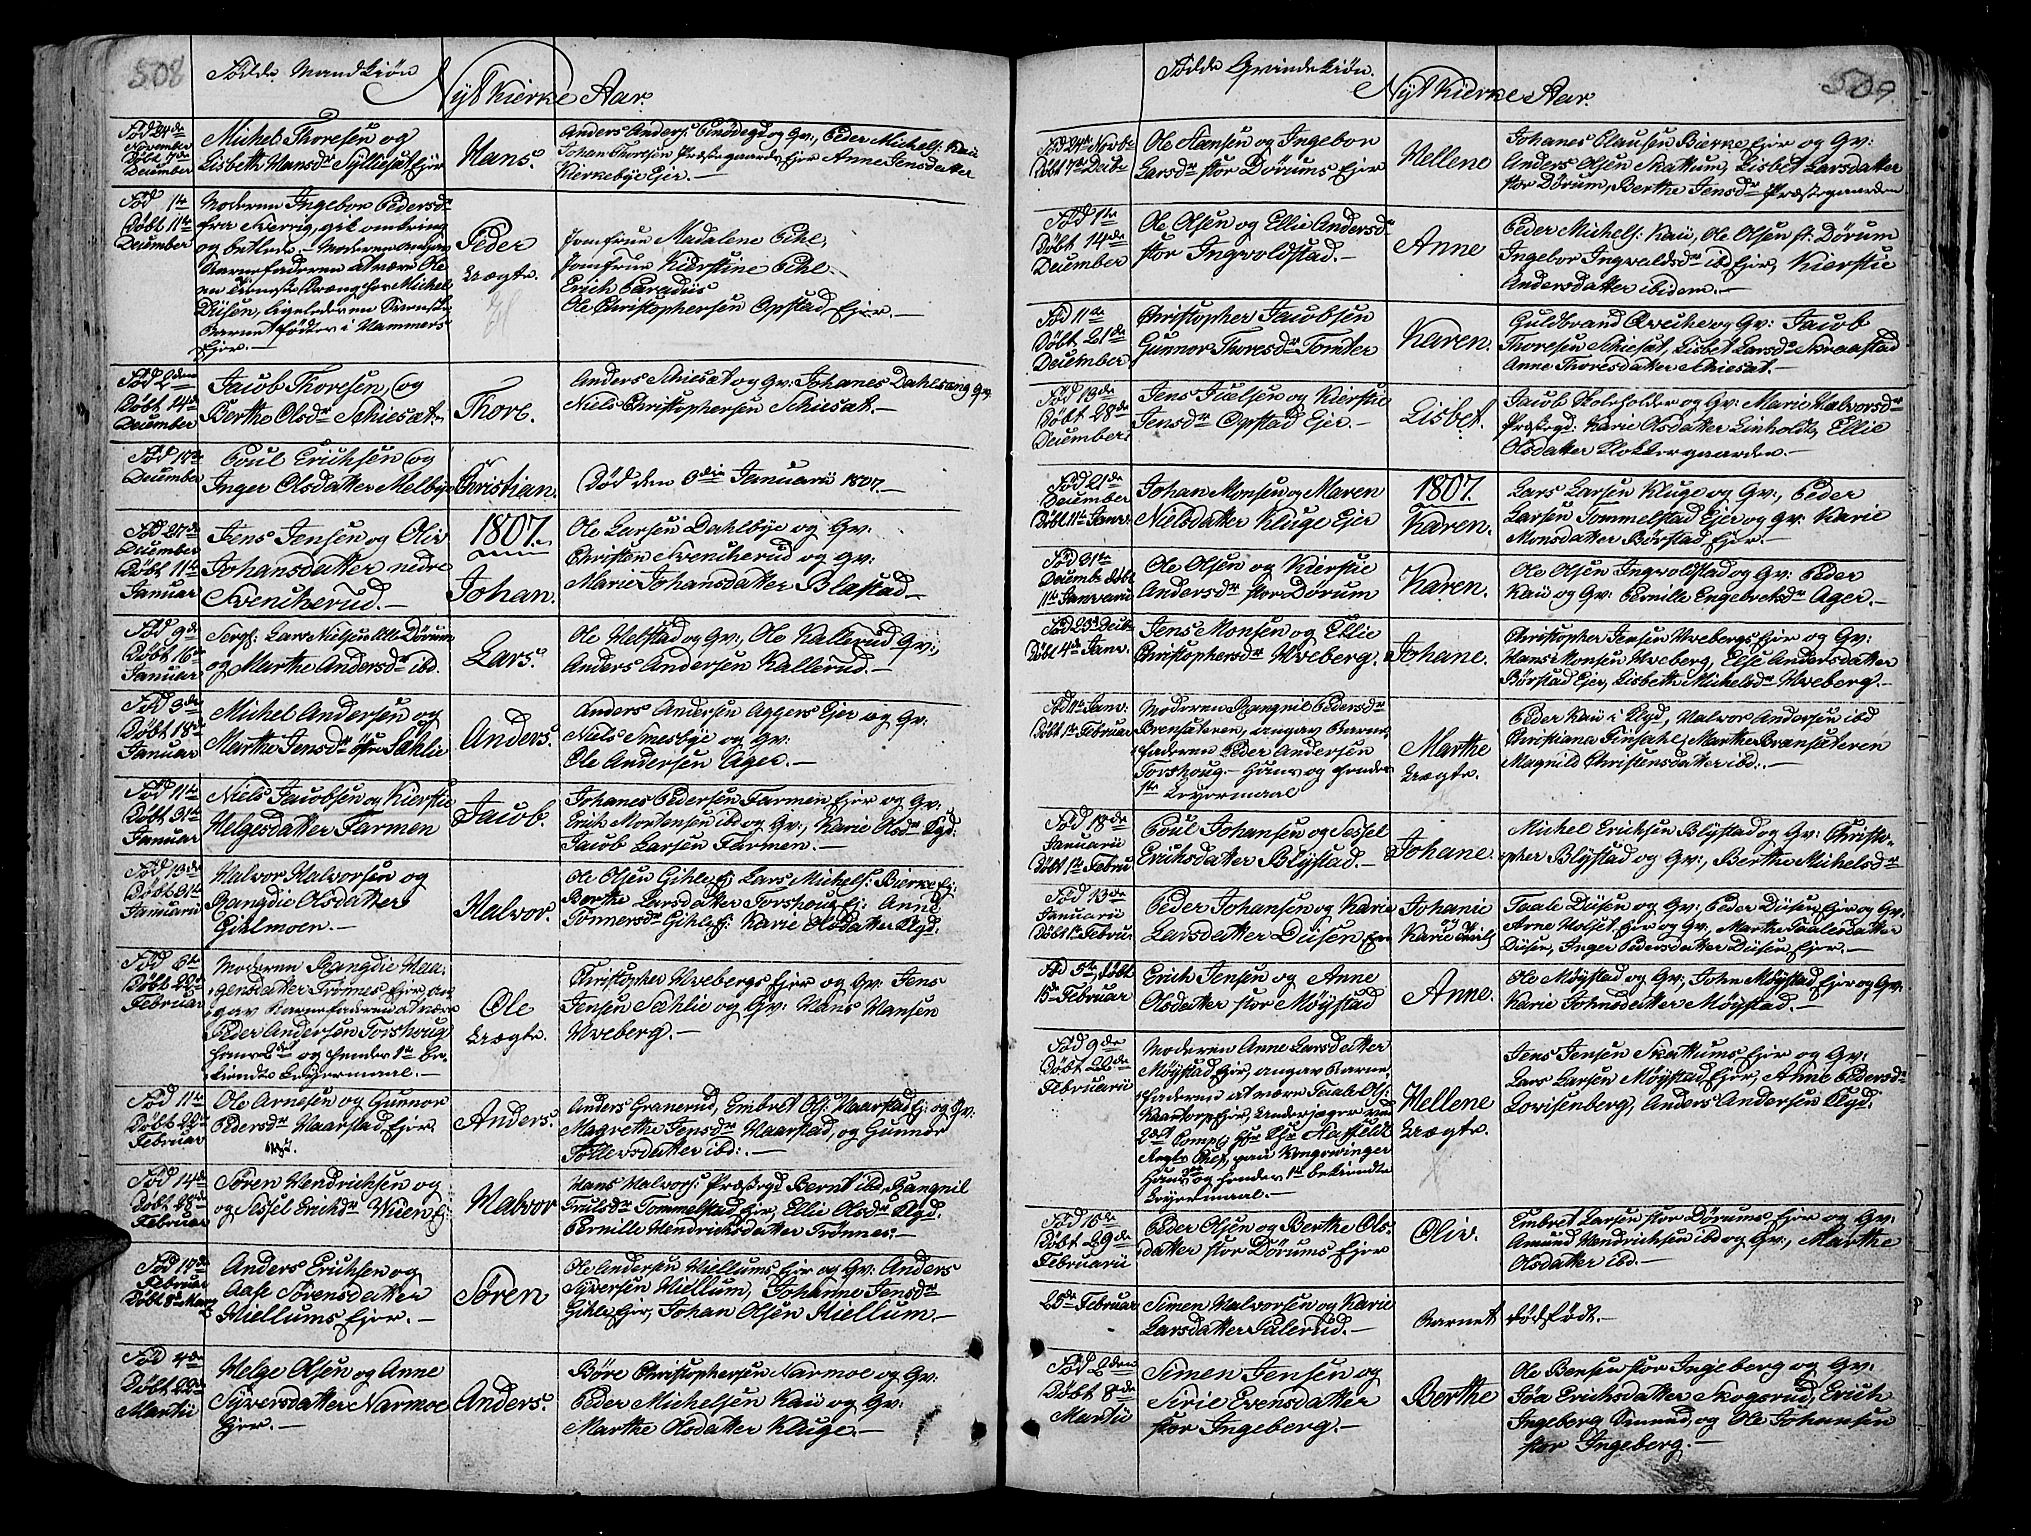 508
Fødde Mandkiøn
Nyt Kierke Aar.
Fød 24de
November
Døbt 7de
December
Michel Thoresen og
Lisbeth Hansdr Sÿlleset Ejer
Hans.
Anders Anders: og Gv:, Peder Michels: Kaü
Johan Thoresen Præstegaards Ejer Anne Jensdatter
Kierkebye Ejer.—
Fød 1te
Døbt 11te
December
Moderen Ingebor Pedersdr
fra Sverrig, gik omkring
og betlede. — Moderen angav
Barnefaderen at være Ole
Michel
Düsen, ligeledes en Svensk,
Barnet fødtes i Hammers
Ejer.—
Peder
Uægte.
Jomfrue Madalene Pihl,
Jomfrue Kierstine Pihl.
Erich Paradiis
Ole Christophersen Opstad Ejer.—
Fød 2den
Døbt 14de
December
Jacob Thoresen, og
Berthe Olsdr Schiesat.
Thore.
Anders Schiesat og Gv: Johanes Dahlseng Gv:
Niels Christophersen Schiesat.—
Fød 17de
December
Poul Erichsen og
Inger Olsdatter Melbye
Christian.
Død den 6die Januarii 1807.—
Fød 27de
December
Døbt 11te
Januar
Jens Jensen og Oliv
Johansdatter nedre
Svencherud.—
1807.
Johan.
Ole Larsen Dahlbye og Gv:
Christen Svencherud og gv:
Marie Johansdatter Blastad—
Fød 9de
Døbt 16de
Januar
Serg: Lars Nielsen Dørum
og Marthe Andersdr ibd.
Lars.
Ole Melstad og Gv:, Ole Kallerud Gv:,
Anders Andersen Kallerud.—
Fød 3de
Døbt 18de
Januar
Michel Andersen og
Marthe Jensdr øfre Sæhlie
Anders.
Anders Andersen Aggers Ejer og Gv:
Niels Smesbye og Gv:
Ole Andersen Ager.—
Fød 11te
Døbt 31te
Januar
Niels Jacobsen og Kierstie
Helgesdatter Farmen
Jacob.
Johanes Pedersen Farmen Ejer og Gv:
Erich Mortensen ibd og Gv:, Karie Olsdr Klgd:
Jacob Larsen Farmen.—
Fød 13de
Døbt 31te
Januarii
Halvor Halvorsen og
Rangdie Olsdatter
Gihlmoen.—
Halvor.
Ole Olsen Gihle Ej: Lars Michels: Bierke Ej:
Berthe Larsdatter Torshoug Ej: Anne
Gihle Ej: Karie Olsdatter Klgd:
Fød 6te
Døbt 22de
Februar
Moderen Rangdie Haa-
gensdatter Trønnes Ejer, an
gav Barnefaderen at være
Peder Andersen Torshoug
hans 2de og hendes 1te be-
kiendte Leyermaal.—
Ole
Uægte.
Christopher Hvebergs Ejer og Gv: Jens
Jensen Sæhlie og Gv: Hans Hansen
Hveberg.—
Fød 11te
Døbt 22de
Februar
Ole Arnesen og Gunnor
Pedersdr Haarstad Ejer
Anders.
Anders Granerud, Embret Ols: Haarstad Ej: og Gv:
Magrethe Jensdr Haarstad, og Gunnor
Tollevsdatter ibd:.—
Fød 14de
Døbt
Februar
Søren Hendrichsen og
og Sessel Erichdr Huien Ej:
Halvor
Hans Halvors: Præstegd Bernt ibd, Rangnil
Truelsdr Tommelstad Ejer, Ellie Olsdr Klgd:
Pernille Hendrichsdatter Trønnes.—
Fød 17de
Februar
Døbt 8de Marty
Anders Erichsen og
Aase Sørensdatter
Hiellums Ejer.—
Søren
Ole Andersen Hiellums Ejer og Gv: Anders
Syversen Hiellum, Johanne Jensdr
Gihle Ejer, Johan Olsen Hiellum.—
Fød 4de
Døbt 22de
Martii
Helge Olsen og Anne
Syversdatter Narmoe
Ejer.—
Anders.
Børe Christophersen Narmoe og Gv:
Peder Michelsen Kaü og Gv:
Marthe Olsdatter Kluge.—
Fødde Qvindekiøn.
509
Nyt Kierke Aar.
Fød 24de Novbr
Døbt 7de Decbr
Ole Hansen og Ingebor
Larsdr stor Dørums Ejer
Hellene
Johanes Clausen Bierke Ejer og Gv:
Anders Olsen Skattum, Lisbet Larsdatter
stor Dørum, Berthe Jensdr Præstegaarden
Fød 1te
Døbt 14de
December
Ole Olsen og Ellie Andersdr
stor Ingvoldstad.—
Anne
Peder Michels: Kaü, Ole Olsen st: Dørum
Ingebor Ingvaldsdr ibd Ejer, Kierstie
Andersdatter ibidem.—
Fød 11te
Døbt 21de
December
Christopher Jacobsen
Gunnor Thoresdr Tomter
Karen.
Guldbrand og Gv: Jacob
Thoresen Schiesat, Lisbet Larsdr Skraastad
Anne Thoresdatter Schiesat.—
Fød 19de
Døbt 28de
December.
Jens Juelsen og Kierstie
Jensdr Opstad Ejer.—
Lisbet.
Jacob Skoleholder og Gv: Marie Halvorsdr
Præstegd: Karie Olsdatter Linholt, Ellie
Olsdatter Klokkergaarden.—
Fød 21de
December
Døbt 11te Janv.
Johan Monsen og Maren
Nielsdatter Kluge Ejer
1807.
Karen.
Lars Larsen Kluge og Gv:, Peder
Larsen Tommelstad Ejer og Gv: Karie
Monsdatter Børstad Ejer.—
Fød 31te
Decemb: Døbt
11te Januarii
Ole Olsen og Kierstie
Andersdr stor Dørum
Karen.
Ole Olsen Ingvoldstad og Gv: Peder
Kaü og Gv: Pernille Engebretsdr Ager.—
Fød 25de Decbr
Døbt 4de Janv.
Jens Monsen og Ellie
Christophersdr Hveberg.
Johane.
Christopher Jensen Hvebergs Ejer og Gv:
Hans Monsen Hveberg, Else Andersdatter
Børstad Ejer, Lisbeth Michelsdr Hveberg.—
Fød 1te Janv:
Døbt 1te Februar
Moderen Rangnil Pedersdr
Brensæteren, angav Barne
faderen Peder Andersen
Torshoug.— Hans og hendes
1te Leyermaal
Marthe
Uægte.
Peder Kaü i Klgd, Halvor Andersen ibd
Christiana Finsahl, Marthe Brænsæteren
Magnild Christensdatter ibd:.—
Fød 18de
Januarii
Døbt 1te Februarii
Poul Johansen og Sessel
Erichsdatter Blÿstad.—
Johane.
Michel Erichsen Blÿstad og Gv: Christo-
pher Blÿstad og Gv:, Berthe Michelsdr
Fød 13de
Januarii
Døbt 1te Februar
Peder Johansen og Karie
Larsdatter Düsen Ejer
Johanie
Karie
Taale Düsen og Gv: Peder Düsen Ejer og Gv:
Arne Holset Ejer og Gv: Marthe Taalesdatter
Düsen, Inger Pedersdatter Düsen Ejer.—
Fød 5te Døbt
15de Februar
Erich Jensen og Anne
Olsdatter stor Møÿstad
Anne.
Ole Møÿstad og Gv:, John Møÿstad Ejer og Gv:
Karie Johnsdatter Møÿstad.—
Fød 9de
Døbt 22de
Februarii
Moderen Anne Larsdatter
Møÿstad Ejer, angav Barne
faderen at være Taale Ols:
Kaatorp Ejer, Underjæger ved
2det Comp:
Regts Chef, paa Kongswinger
Hans og hendes 1te bekiendte
Leyermaal.—
Hellene
Uægte.
Jens Jensen Skattums Ejer og Gv:
Lars Larsen Møÿstad Ejer, Anne Pedersdr
Lovisenberg, Anders Andersen Klgd.—
Fød 15de
Døbt 29de
Februarii
Peder Olsen og Berthe Ols-
datter stor Dørums Ejer
Oliv.
Embret Larsen stor Dørums Ejer og Gv:
Amund Hendrichsen ibd og Gv:, Marthe
Olsdatter ibd.—
25de Februar
Simen Halvorsen og Karie
Larsdatter Falerud.—
Barnet dødfødt.—
Fød 2den
Døbt 8de
Martii
Simen Jensen og
Sirie Evensdatter
stor Ingeberg.—
Berthe
Ole Bensen stor Ingeberg og Gv:
Føa Erichsdatter Skogsrud, Erich
Ingeberg og Ole Johansen
stor Ingeberg.—